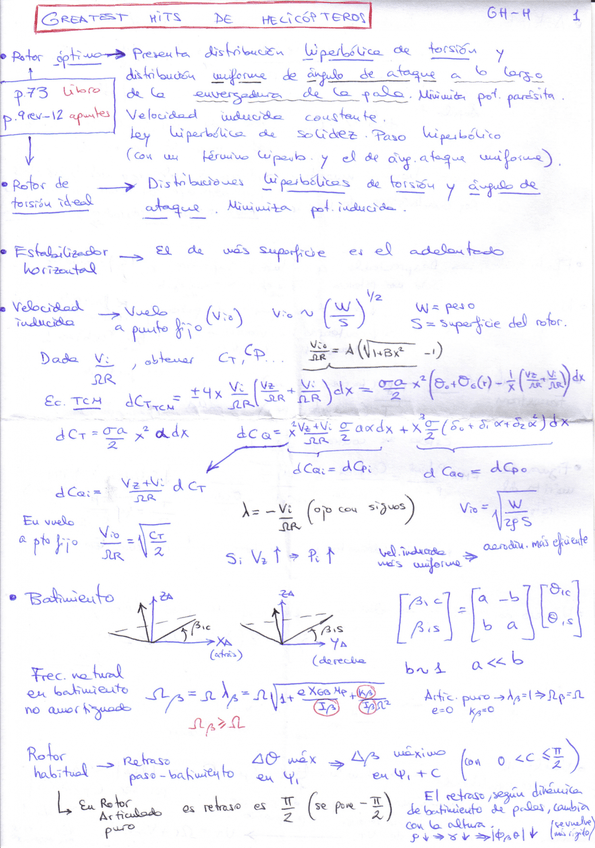 GREATEST HITS DE HELICÓPTEROS
GH-H 1
• Rotor óptimo → Presenta distribución hiperbólica de torsión y
distribución uniforme de ángulo de ataque a lo largo
p.73 Libro
p.9rev-12 apuntes
de la envergadura de la pala. Minimiza pot. parásita.
Velocidad inducida constante.
Ley hiperbólica de solidez. Paso hiperbólico
(con un término hiperb. y el de áng. ataque uniforme).
• Rotor de torsión ideal → Distribuciones hiperbólicas de torsión y ángulo de
ataque. Minimiza pot. inducida.
• Estabilizador horizontal → El de más superficie es el adelantado
• Velocidad inducida → Vuelo a punto fijo (Vio) Vio ~ (W/S)^1/2 W = peso
S = superficie del rotor.
Dada Vi/ΩR, obtener CT, CP... Vio/ΩR = A(√(1+Bx²) -1)
Ec. TCM dCT_TCM = ±4x Vi/ΩR (Vz/ΩR + Vi/ΩR) dx = σa/2 x² (θ0+θ0(r) - 1/x (Vz/ΩR + Vi/ΩR)) dx
dCT = σa/2 x² α dx dCQ = x² Vz+Vi/ΩR σ/2 aαdx + x³ σ/2 (δ0 + δ1α + δ2α²) dx
dCQi = dCPi dCQ0 = dCP0
dCQi = Vz+Vi/ΩR dCT
λ = - Vi/ΩR (ojo con signos) Vio = √(W/2ρS)
En vuelo a pto fijo Vio/ΩR = √(CT/2)
Si Vz ↑ → Pi ↑ vel. inducida más uniforme ⇒ aerodin. más eficiente
• Batimiento
ZΔ β1C XΔ (atrás)
ZΔ β1S YΔ (derecha
[β1C β1S] = [a -b b a] [θ1C θ1S]
b~1 a<<b
Frec. natural en batimiento no amortiguado Ωβ = Ω λβ = Ω √(1 + e XGB MP/Iβ + Kβ/IβΩ²)
Ωβ ≥ Ω
Artic. puro → λβ=1 ⇒ Ωβ=Ω
e=0 Kβ=0
Rotor habitual → Retraso paso-batimiento Δθ máx en Ψ1 ⇒ Δβ máximo en Ψ1 + C (con 0 < C ≤ π/2)
↳ En Rotor Articulado puro es retraso es π/2 (se pone -π/2)
El retraso, según dinámica
de batimiento de palas, cambia
con la altura.
ρ↓ ⇒ γ↓ ⇒ |Φβθ| ↓ (se vuelve más rígido)